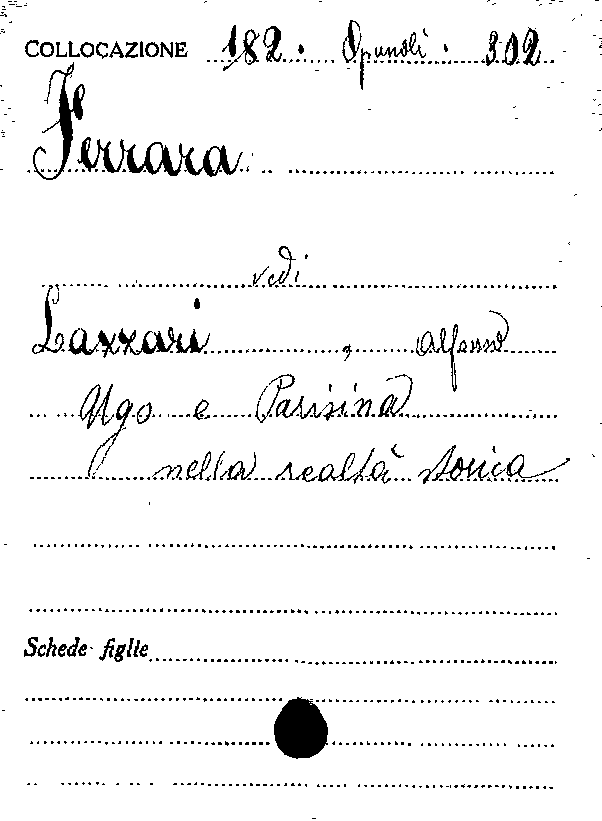 COLLOCAZIONE 182. Opuscoli. 302
Ferrara
vedi
Lazzari, Alfonso
Ugo e Parisina
nella realtà storica
Schede figlie